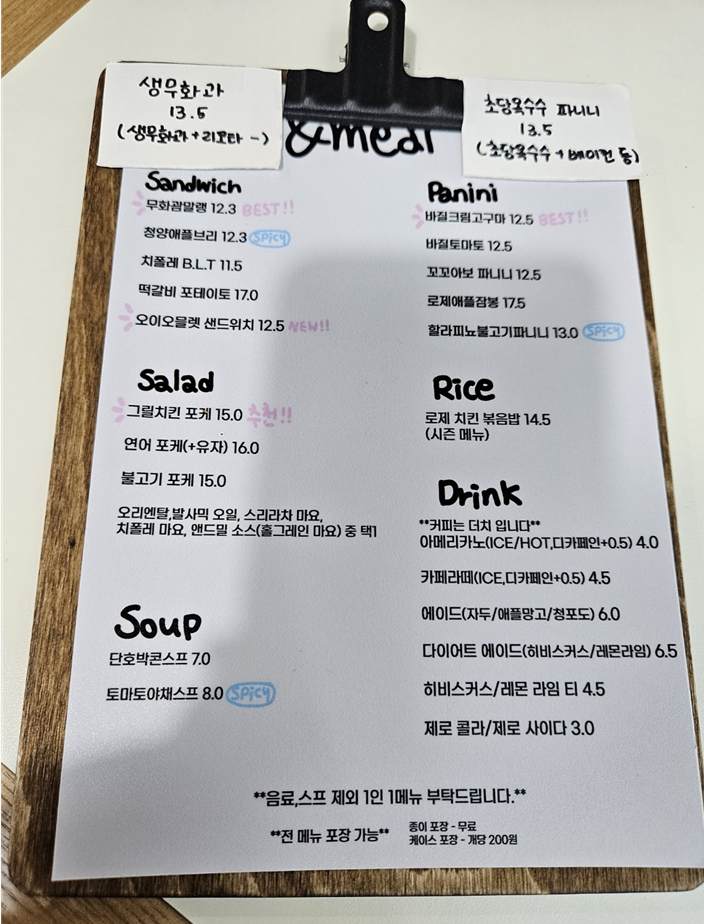 생무화과
13.5
(생무화과+리코타 ~)
초당옥수수 파니니
13.5
(초당옥수수 + 베이컨 등)
&meal
Sandwich
무화괌말랭 12.3 BEST!!
청양애플브리 12.3 SPICY
치폴레 B.L.T 11.5
떡갈비 포테이토 17.0
오이오믈렛 샌드위치 12.5 NEW!!
Panini
바질크림고구마 12.5 BEST!!
바질토마토 12.5
꼬꼬아보 파니니 12.5
로제애플잠봉 17.5
할라피뇨불고기파니니 13.0 SPICY
Salad
그릴치킨 포케 15.0 추천!!
연어 포케(+유자) 16.0
불고기 포케 15.0
오리엔탈,발사믹 오일, 스리라차 마요,
치폴레 마요, 앤드밀 소스(홀그레인 마요) 중 택1
Rice
로제 치킨 볶음밥 14.5
(시즌 메뉴)
Drink
**커피는 더치 입니다**
아메리카노(ICE/HOT,디카페인+0.5) 4.0
카페라떼(ICE,디카페인+0.5) 4.5
에이드(자두/애플망고/청포도) 6.0
다이어트 에이드(히비스커스/레몬라임) 6.5
히비스커스/레몬 라임 티 4.5
제로 콜라/제로 사이다 3.0
Soup
단호박콘스프 7.0
토마토야채스프 8.0 SPICY
**음료,스프 제외 1인 1메뉴 부탁드립니다.**
**전 메뉴 포장 가능**
종이 포장 - 무료
케이스 포장 - 개당 200원